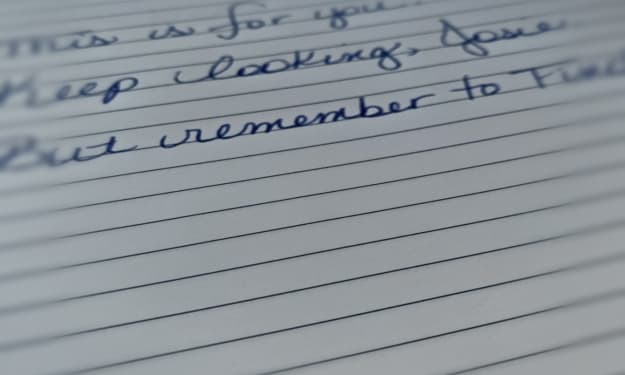 This is for you...
Keep looking, Josie
But remember to Find